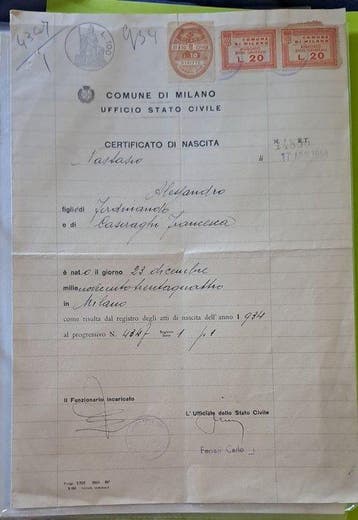 4347
1
934
L. 100
COMUNE
DI MILANO
L. 20
COMUNE
DI MILANO
L. 20
COMUNE DI MILANO
UFFICIO STATO CIVILE
CERTIFICATO DI NASCITA
Nastasio
Alessandro
figlio di Ferdinando
e di Casiraghi Francesca
è nato il giorno 23 dicembre
millenovecentotrentaquattro
in Milano
come risulta dal registro degli atti di nascita dell'anno 1934
al progressivo N. 4347 Registro 1 p 1
Il Funzionario incaricato
L'Ufficiale dello Stato Civile
Carlo